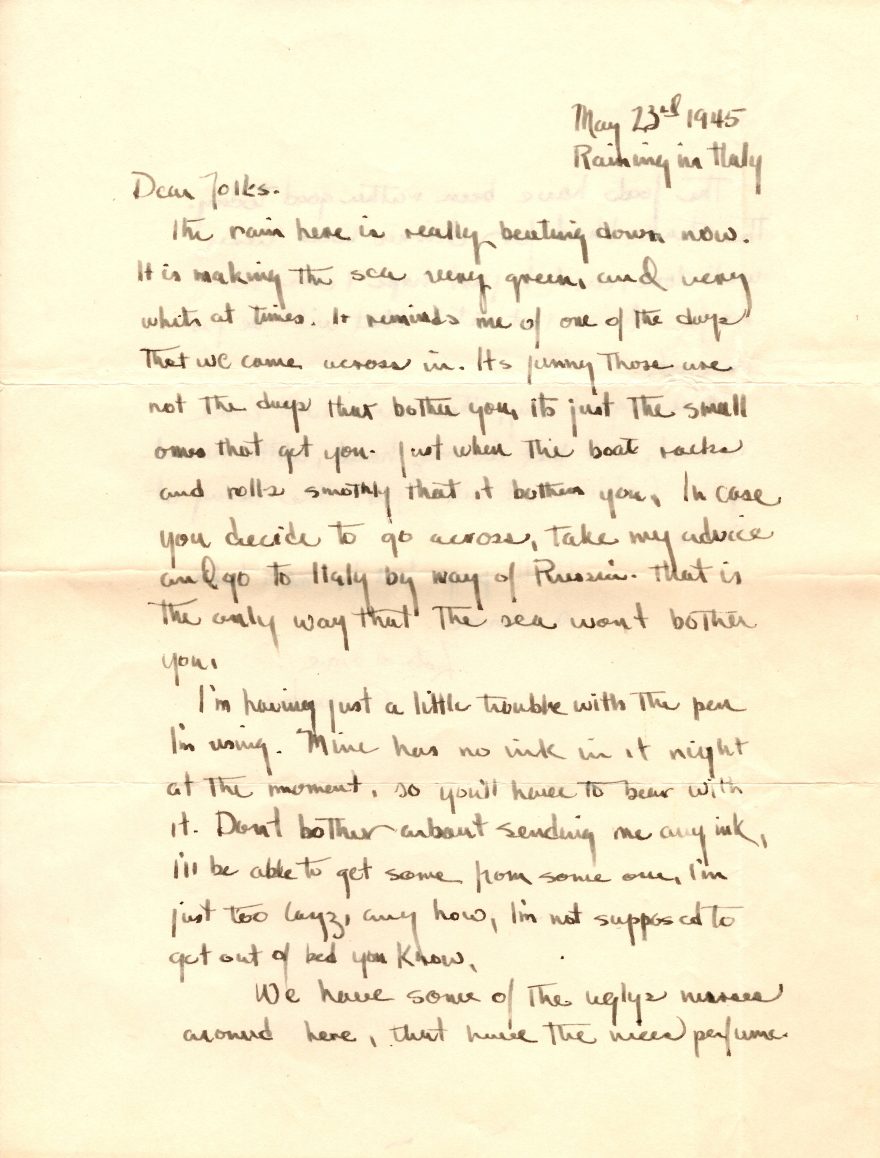 May 23rd 1945
Raining in Italy
Dear Folks.
The rain here is really beating down now.
It is making the sea very green, and very
white at times. It reminds me of one of the days
that we came across in. Its funny those are
not the days that bother you, its just the small
ones that get you. Just when the boat rocks
and rolls smothly that it bothers you. In case
you decide to go across, take my advice
and go to Italy by way of Russia. That is
the only way that the sea won't bother
you.
I'm having just a little trouble with the pen
I'm using. Mine has no ink in it right
at the moment, so you'll have to bear with
it. Don't bother about sending me any ink,
I'll be able to get some from some one, I'm
just too layz, any how, I'm not supposed to
get out of bed you know.
We have some of the nurses
around here, that have the perfume